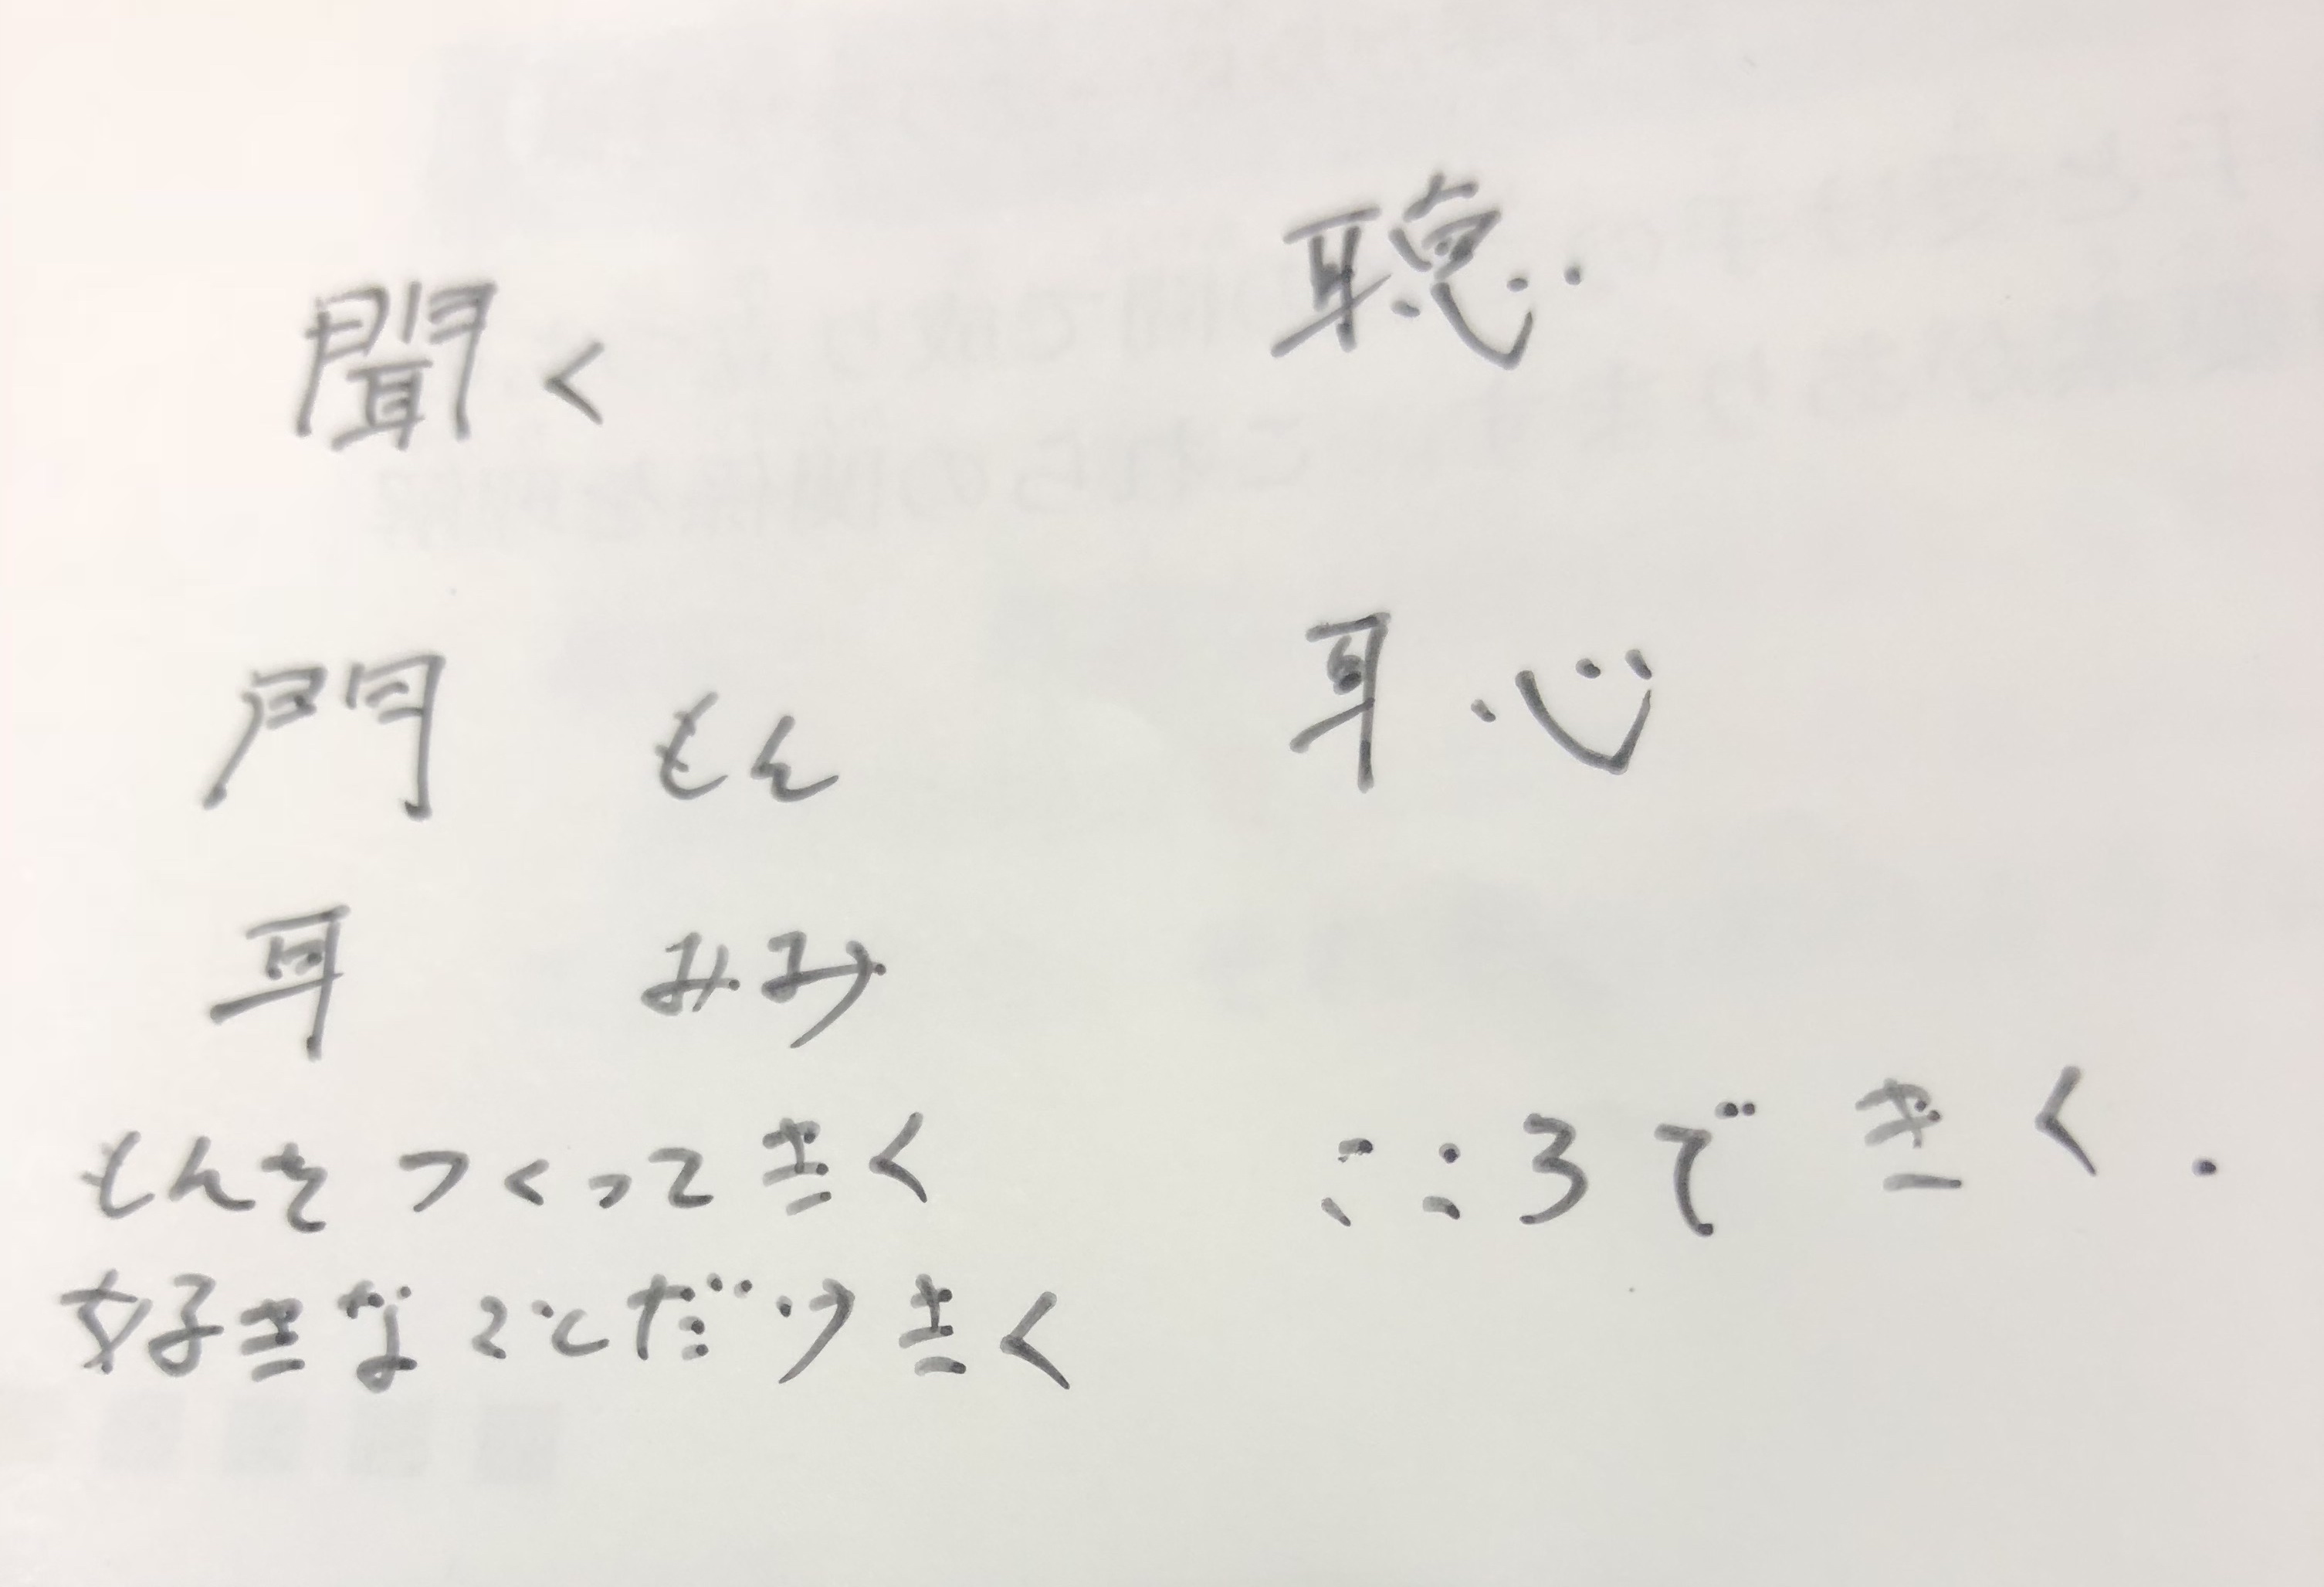 聞く
門 もん
耳 みみ
もんをつくってきく
好きなことだけきく
聴
耳 心
こころできく.